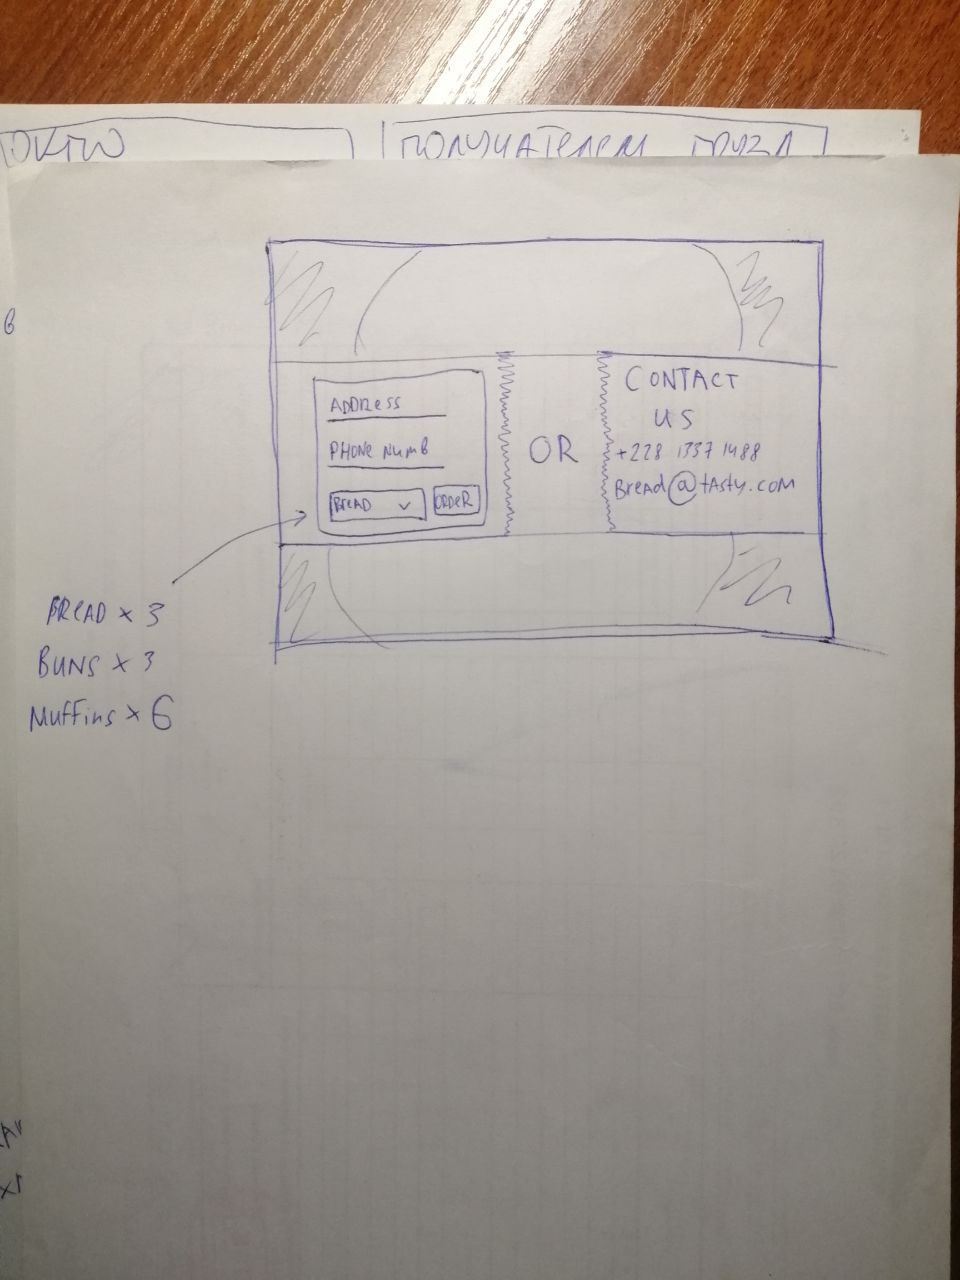 ОКТО
ПОЛУЧАТЕЛЕМ ГРУЗА
в
ADDRESS
PHONE NUMB
BREAD
ORDER
OR
CONTACT
US
+228 1337 1488
Bread@tasty.com
BREAD x 3
BUNS x 3
Muffins x 6
А"